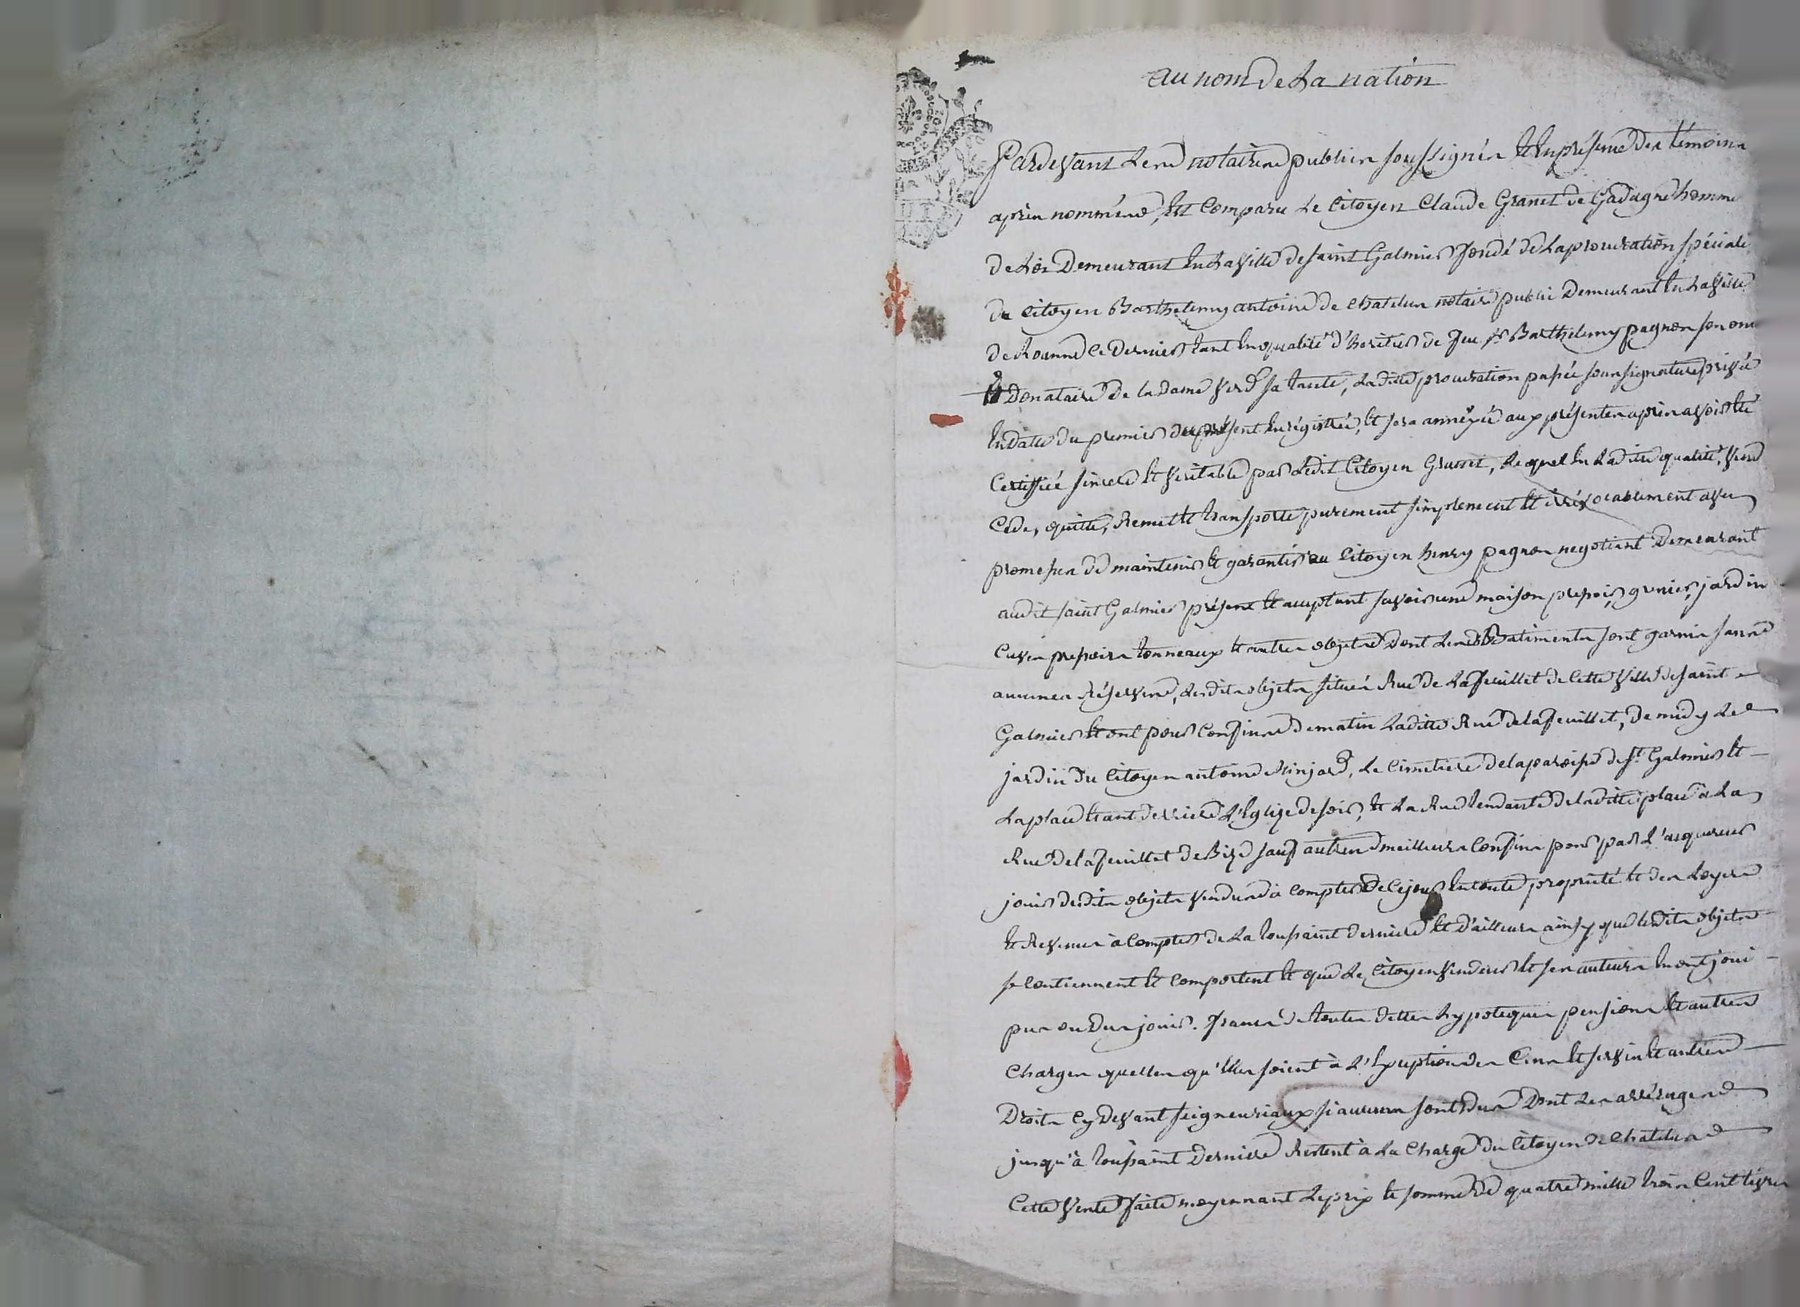 au nom de La nation
Pardevant Les notaires publics soussignés Et En présence des témoins
après nommés, Est Comparu Le Citoyen Claude Granet de Gadagne homme
de Loi Demeurant En La Ville de saint Galmier fondé de La procuration spéciale
de Citoyen Barthelemy antoine de Chatelus notaire public Demeurant En La Ville
de Roanne Ce Dernier tant En qualité d'heritier de feu Sr Barthelemy pagnon son oncle
Donataire de la Dame Verd sa tante, Laditte procuration passée sous signature privée
En datte du premier du présent Enrégistrée, Et sera annéxée aux présentes après avoir été
Certiffiée sincere Et Veritable par Ledit Citoyen Granet, Lequel En Ladite qualité, Vend
Cede, quitte, Remet Et transporte purement simplement Et irrévocablement avec
promesse de maintenir Et garantir au Citoyen henry pagnon negotiant Demeurant
audit saint Galmier présent Et acceptant savoir une maison pressoir, grenier, jardin
Cuves pressoirs tonneaux Et autres objets Dont Lesd. Batiments sont garnis sans
aucunes Réserves, Lesdits objets situés Rue de Lafeuillet de Cette Ville de saint
Galmier Et ont pour Confins de matin Laditte Rue de lafeuillet, de midy Le
jardin du Citoyen antoine, Le Cimetiere de la paroisse de St. Galmier Et
La place Etant derriere L'Eglize de soir, Et La Rue tendante de laditte place à La
Rue de lafeuillet de Bize sauf autres meilleurs Confins pour par L'acquereur
jouir desdits objets Vendus à Compter de Ce jour En toute propriété Et des Loyers
Et Revenus à Compter de La toussaint derniere Et d'ailleurs ainsy que lesdits objets
se Contiennent Et Comportent Et que Le Citoyen Vendeur Et ses auteurs En ont joui
pu ou du jouir. francs de toutes dettes hypoteques pensions Et autres
Charges quelles qu'Elles soient à L'Exception des Cens Et servis Et autres
Droits Cy devant seigneuriaux si aucuns sont dus Dont Les arrérages
jusqu'à toussaint Derniere Restent à La Charge du Citoyen de Chatelus
Cette Vente faite moyennant Le prix Et somme de quatre mille trois Cent livres